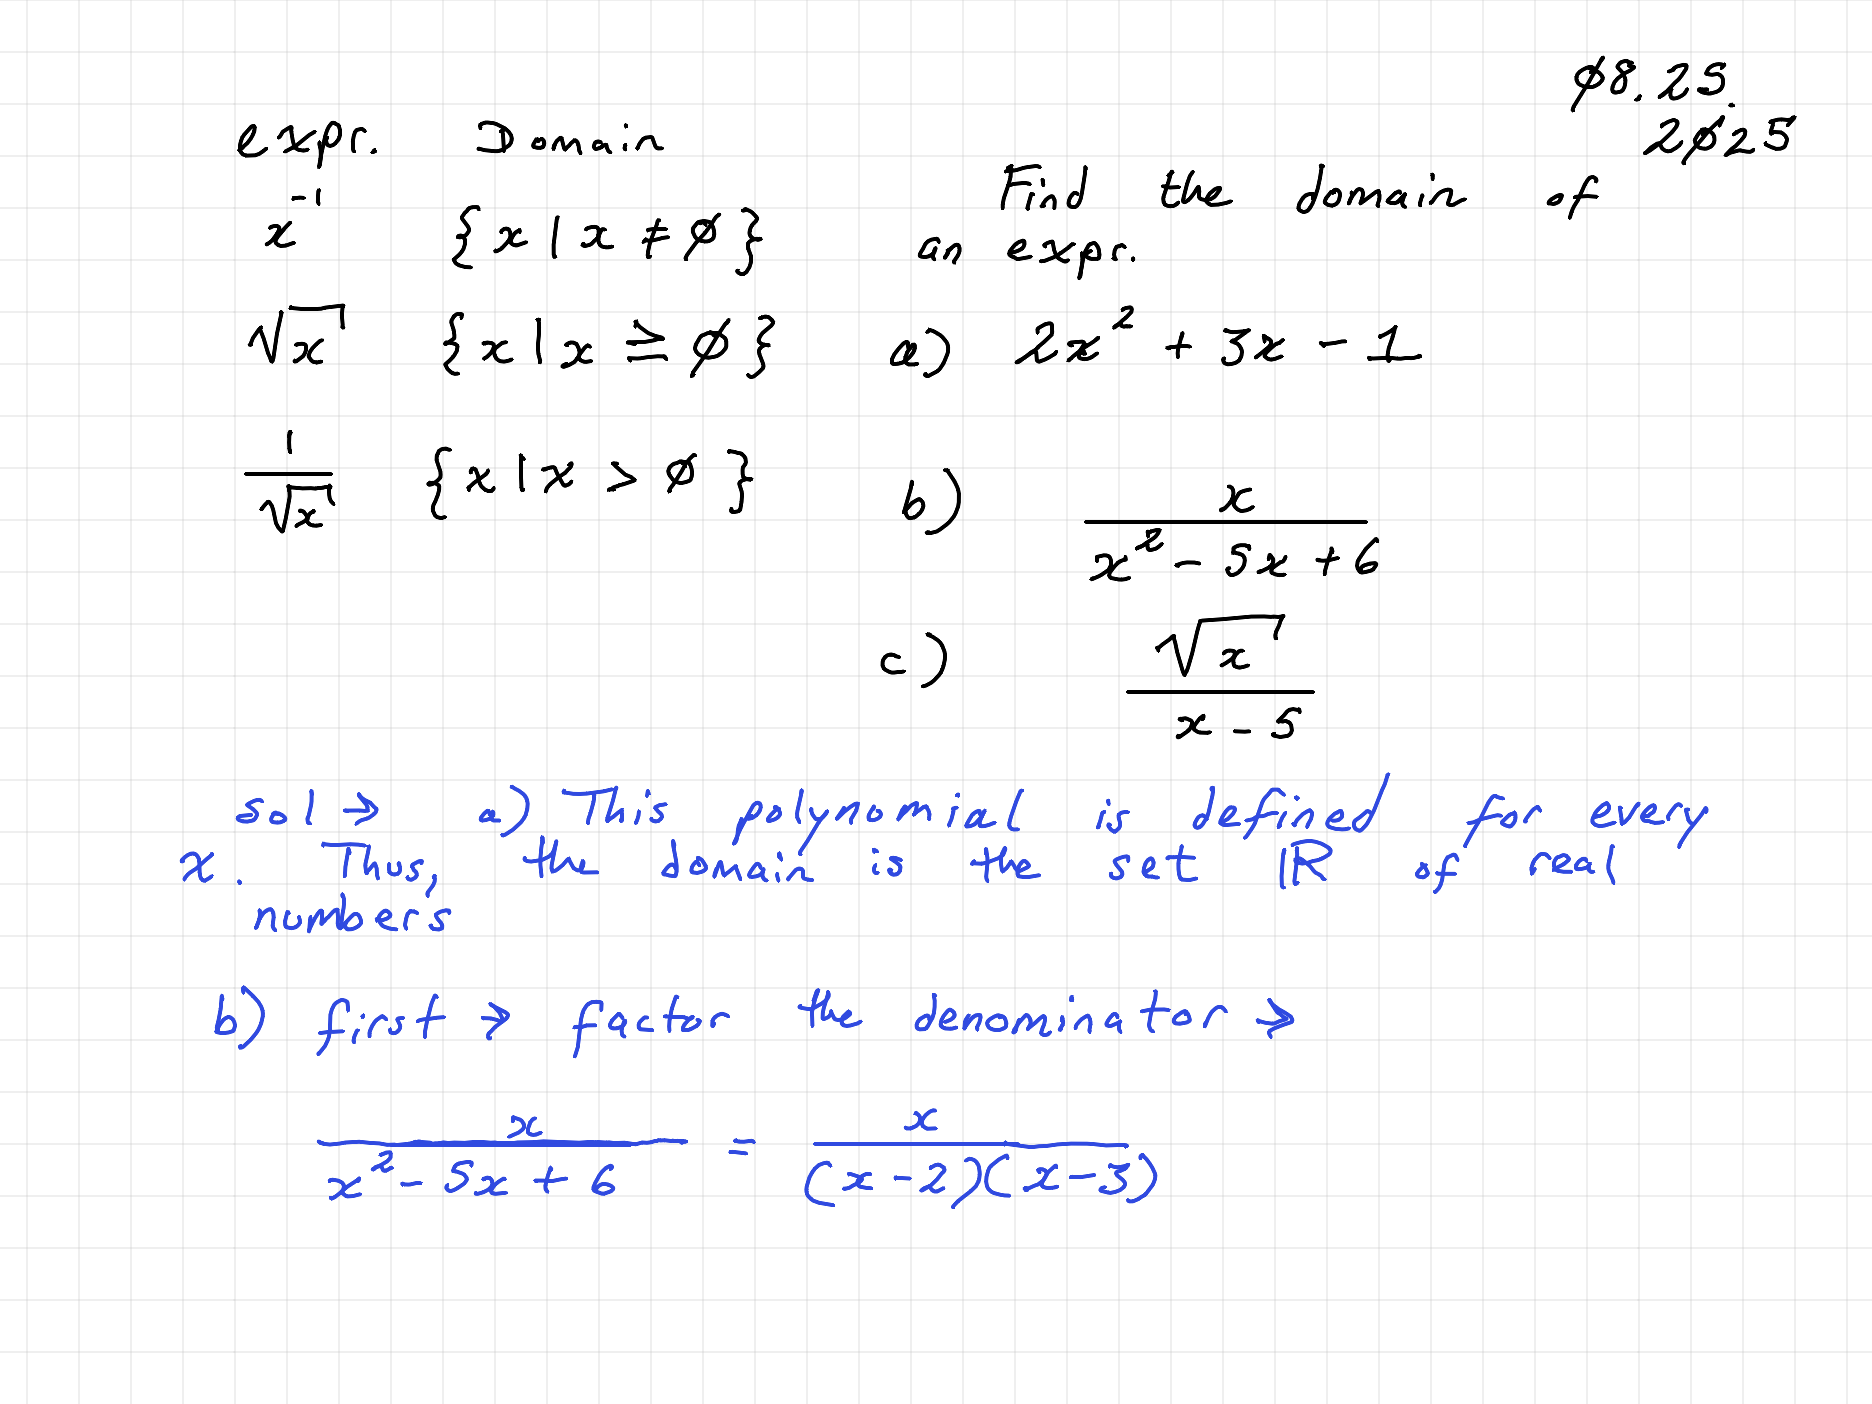 ø8.25.
2ø25
expr. Domain
x⁻¹ {x | x ≠ ø}
√x {x | x ≥ ø}
1/√x {x | x > ø}
Find the domain of
an expr.
a) 2x² + 3x - 1
b) x/(x² - 5x + 6)
c) √x/(x - 5)
sol → a) This polynomial is defined for every
x. Thus, the domain is the set ℝ of real
numbers
b) first → factor the denominator →
x/(x² - 5x + 6) = x/((x - 2)(x - 3))